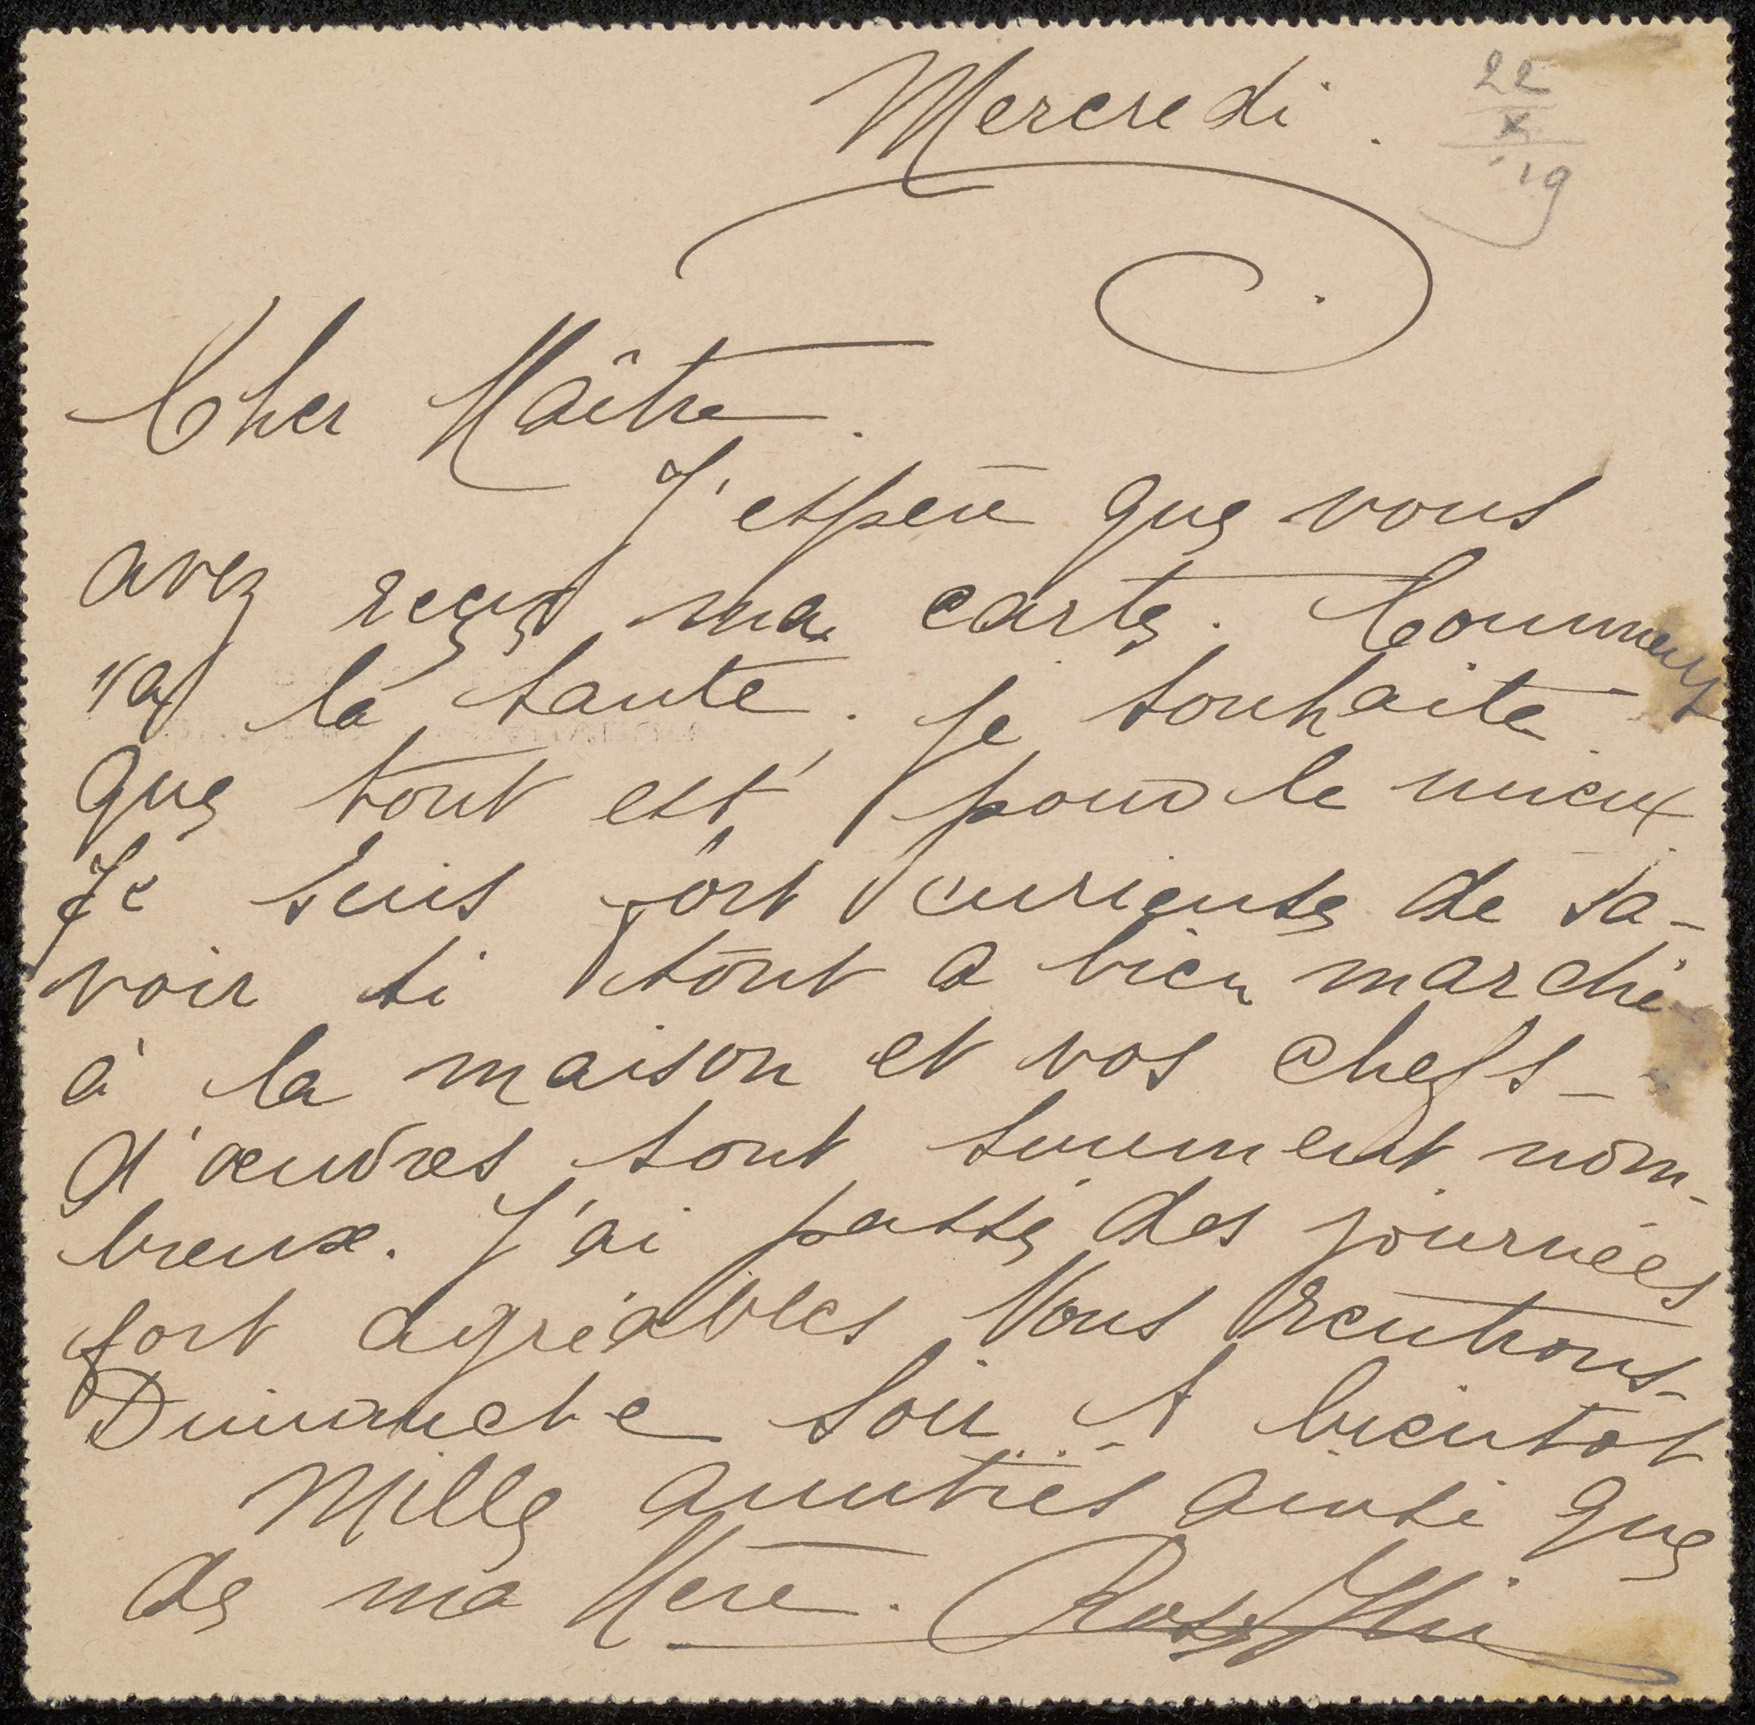 Mercredi.
22
X
'19
Cher Maître.
J'espère que vous
avez reçu ma carte. Comment
va la santé. Je souhaite
que tout est pour le mieux
Je suis fort curieuse de sa-
voir si tout a bien marché
à la maison et vos chefs-
d'œuvres sont surement nom-
breux. J'ai passé des journées
fort agréables Nous rentrons
Dimanche soir A bientôt
Mille amitiés ainsi que
de ma Mère.